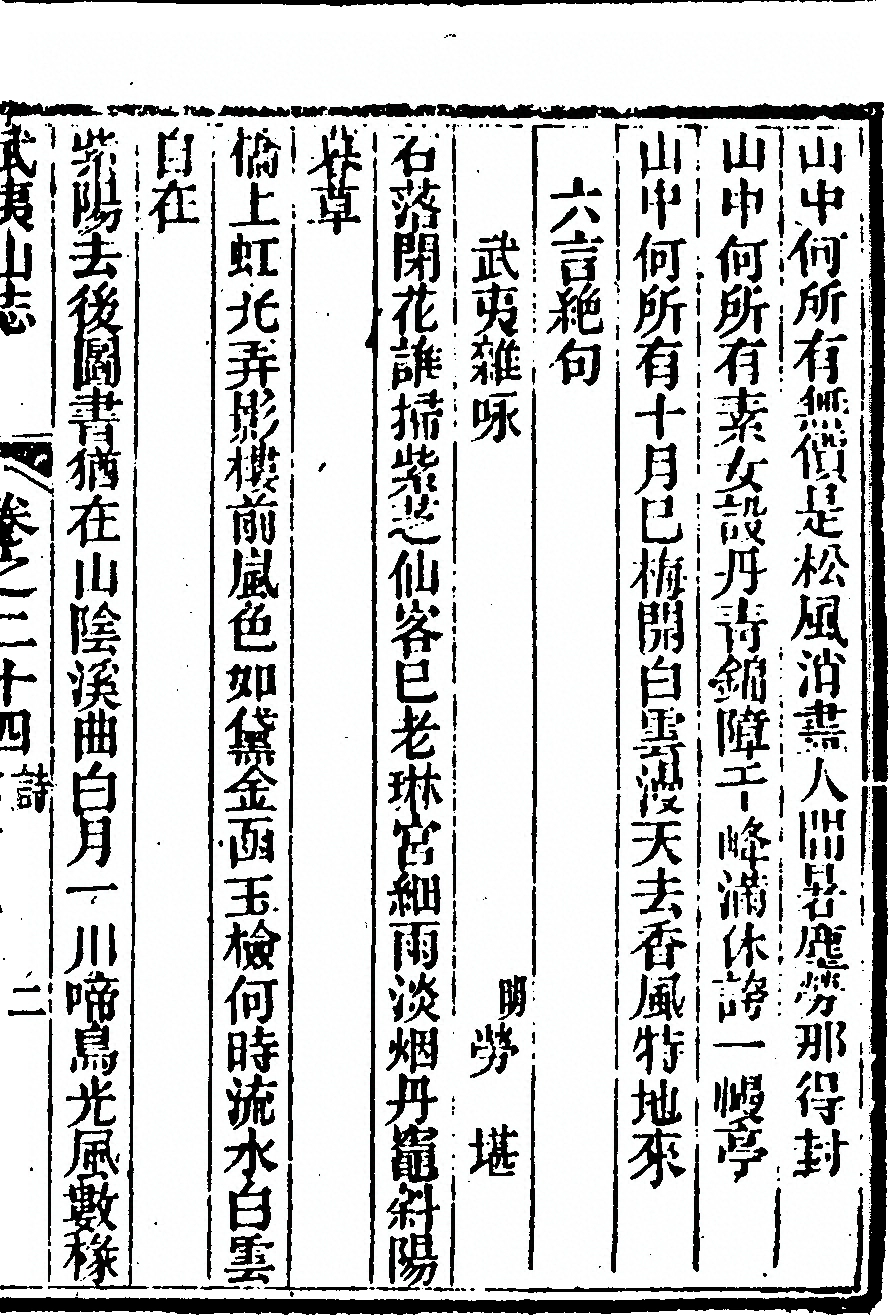 山中何所有無價是松風消盡人間暑塵勞那得封
山中何所有素女設丹青錦障千峰滿休誇一幔亭
山中何所有十月已梅開白雲漫天去香風特地來
六言絶句
武夷雜咏
明勞堪
石落閑花誰掃紫芝仙客已老琳宮細雨淡烟丹竈斜陽
春草
橋上虹光弄影樓前嵐色如黛金函玉檢何時流水白雲
自在
紫陽去後圖書猶在山陰溪曲白月一川啼鳥光風數椽
武夷山志
卷之二十四
詩
二